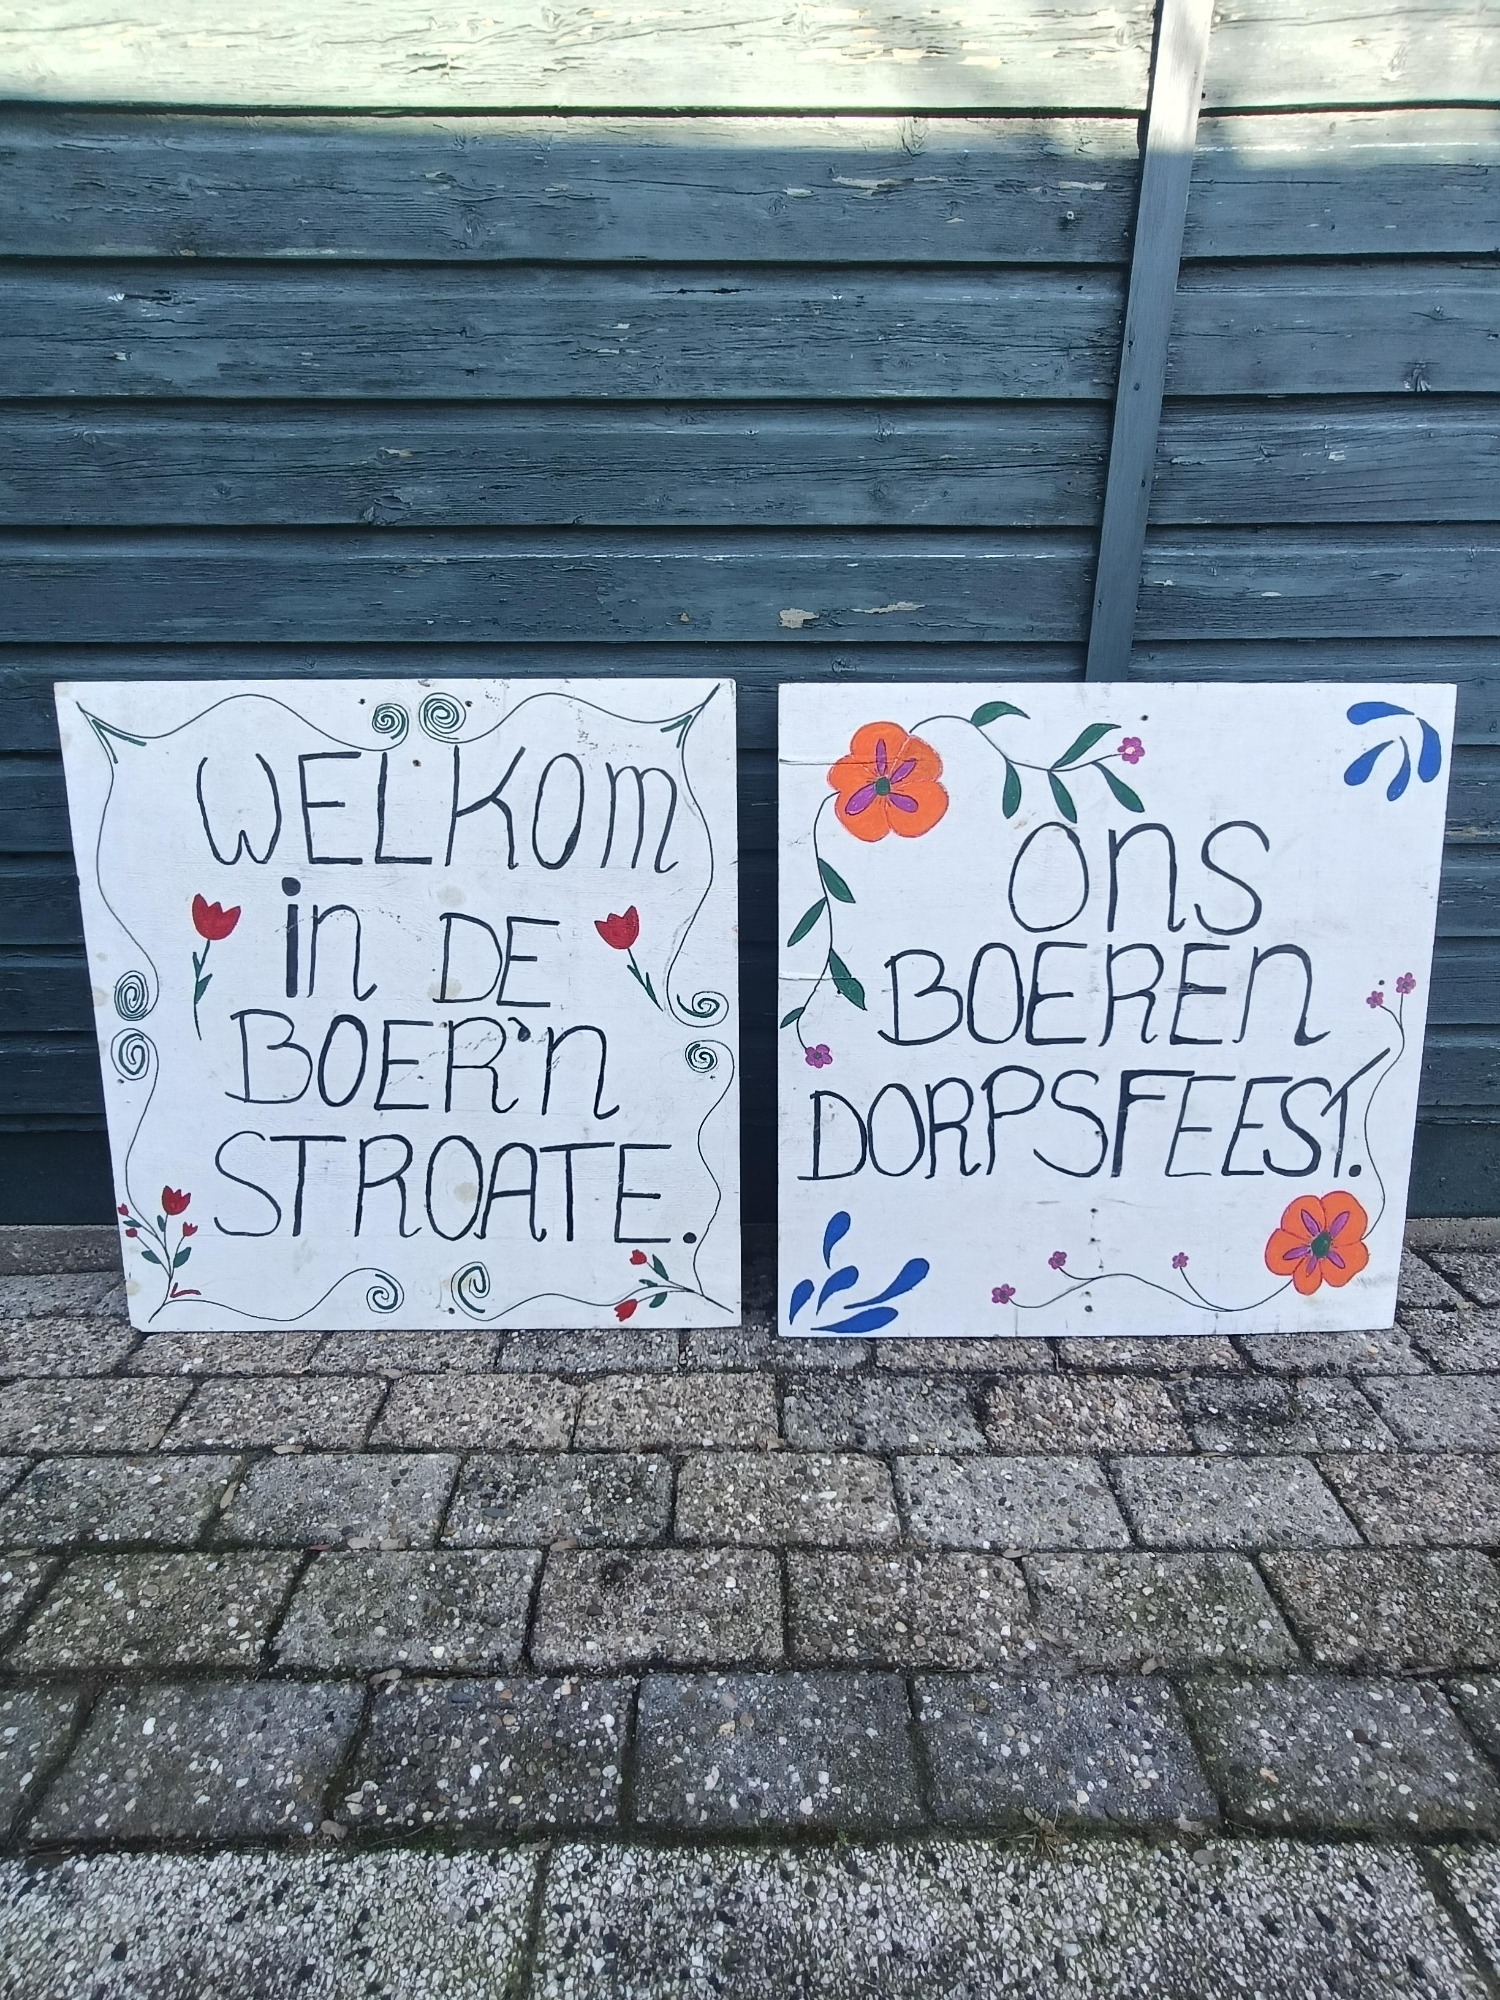 WELKOm
in DE
BOER'n
STROATE.
Ons
BOEREn
DORPSFEEST.